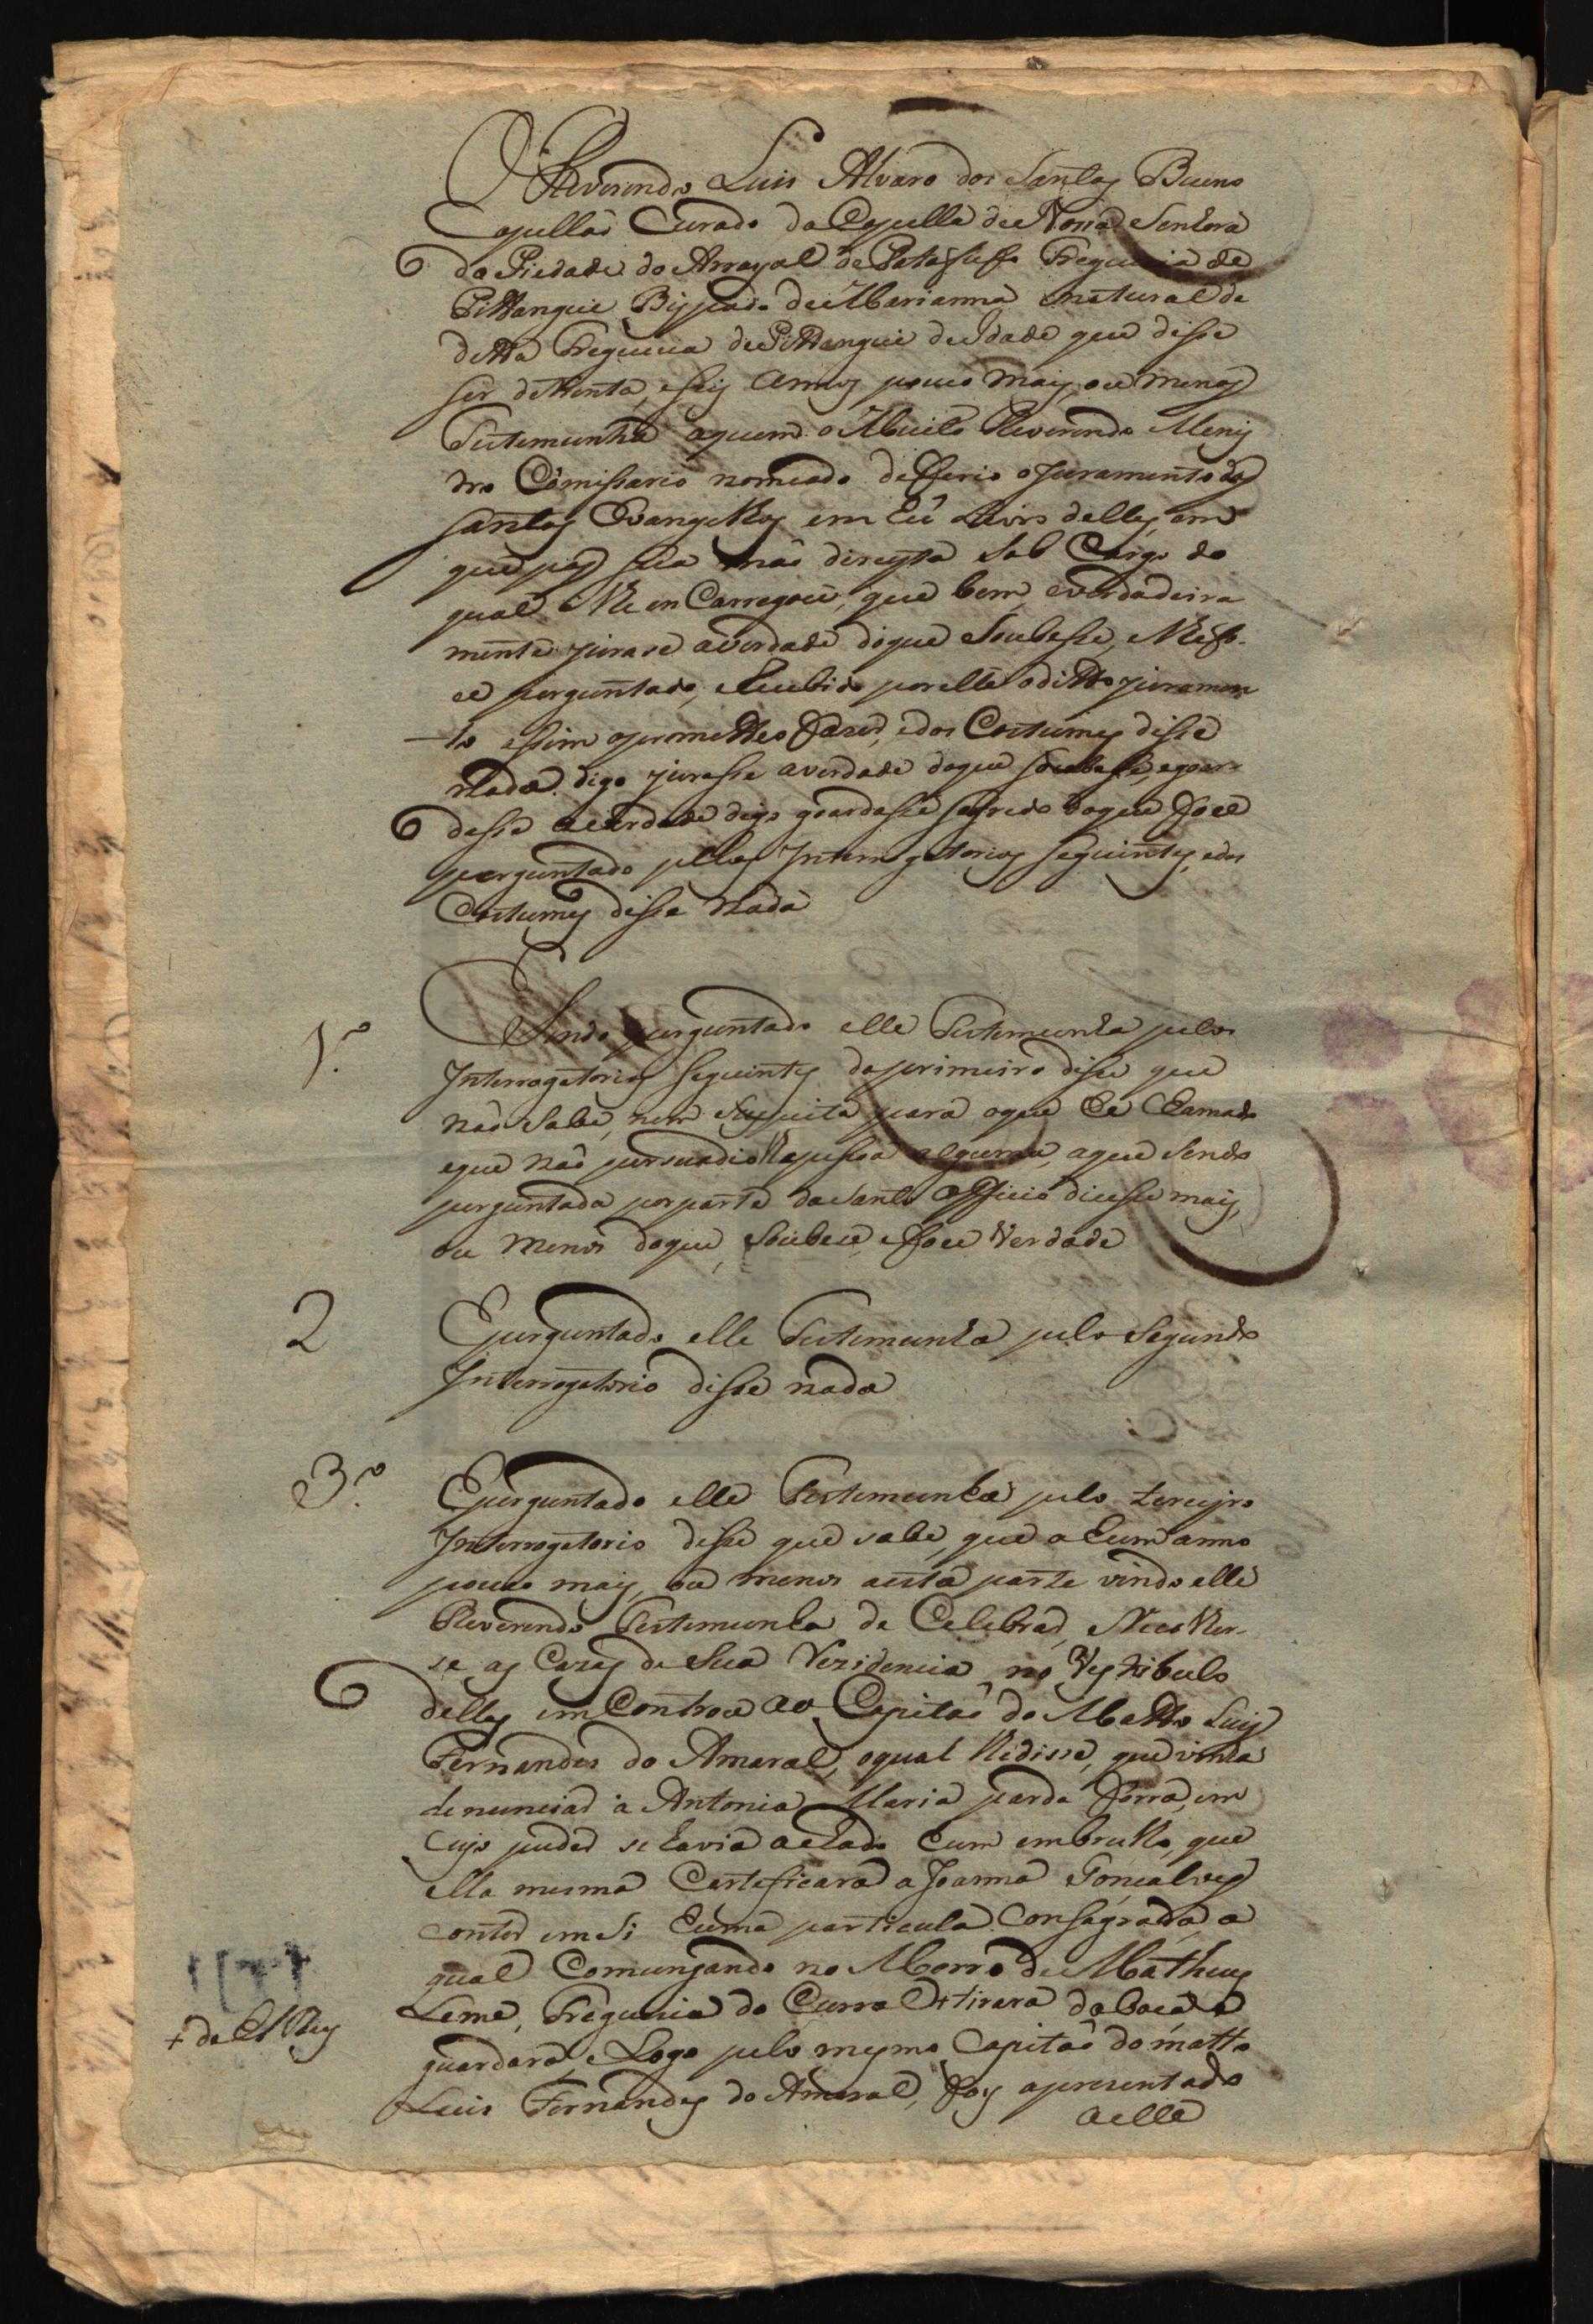 O Reverendo Luis Alvaro dos Santos Bueno
Capellaõ Curado da Capella de Nossa Senhora
da Piedade do Arrayal de Patafufo Freguezia de
Pittangue Bispado de Marianna natural de
ditta Freguezia de Pittangui de Idade que disse
ser de trenta, e seis annos pouco mais, ou menos
Testemunha aquem o Muito Reverendo Menis
tro Comissario nomeado defferio o Juramento dos
Santos Evangelhos em hu livro delles, em
que pos sua maõ direyta Sob Cargo do
qual lhe en Carregou, que bem, e verdadeira
mente jurase averdade do que Soubesse, e lhe fo-
ce perguntado, e Recebido por elle o ditto juramen
to assim oprometteo fazer, e dos Costumes disse
nada. digo jurasse averdade doque soubesse, egoar-
dasse averdade digo goardasse segredo doque foce
perguntado pellos Interrogatorios seguintes, edos
Costumes disse nada
1.º Sendo perguntado elle Testemunha pelos
Interrogatorios seguintes do primeiro disse que
naõ Sabe, nem Suspeita para oque he chamado
eque naõ persuadio lhe pessoa alguma, aque Sendo
perguntada por parte do Santo Officio dicesse mais,
ou menos doque Soubece, e foce Verdade
2 E perguntado elle Testemunha pelo Segundo
Interrogatorio disse nada
3.º E perguntado elle Testemunha pelo terceyro
Interrogatorio disse que sabe, que a hum anno
pouco mais, ou menos aesta parte vindo elle
Reverendo Testemunha de Celebrar, e Recolher-
se as Cazas de Sua Rezidencia, no Vestibulo
dellas emControu ao Capitaõ do Matto Luis
Fernandes do Amaral, oqual lhe disse, que vinha
denunciar a Antonia Maria parda forra, em
Cujo poder se havia achado hum embrulho, que
ella mesma Certeficara a Joanna Gonçalves
conter em Si huma particula Consagrada, a
qual Comungando no Morro de Matheus
Leme, Freguezia do Curral + tirara da boca e a
+ de El Rey
guardara, e Logo pelo mesmo Capitaõ do matto
Luis Fernandes do Amaral, foy apresentado
aelle